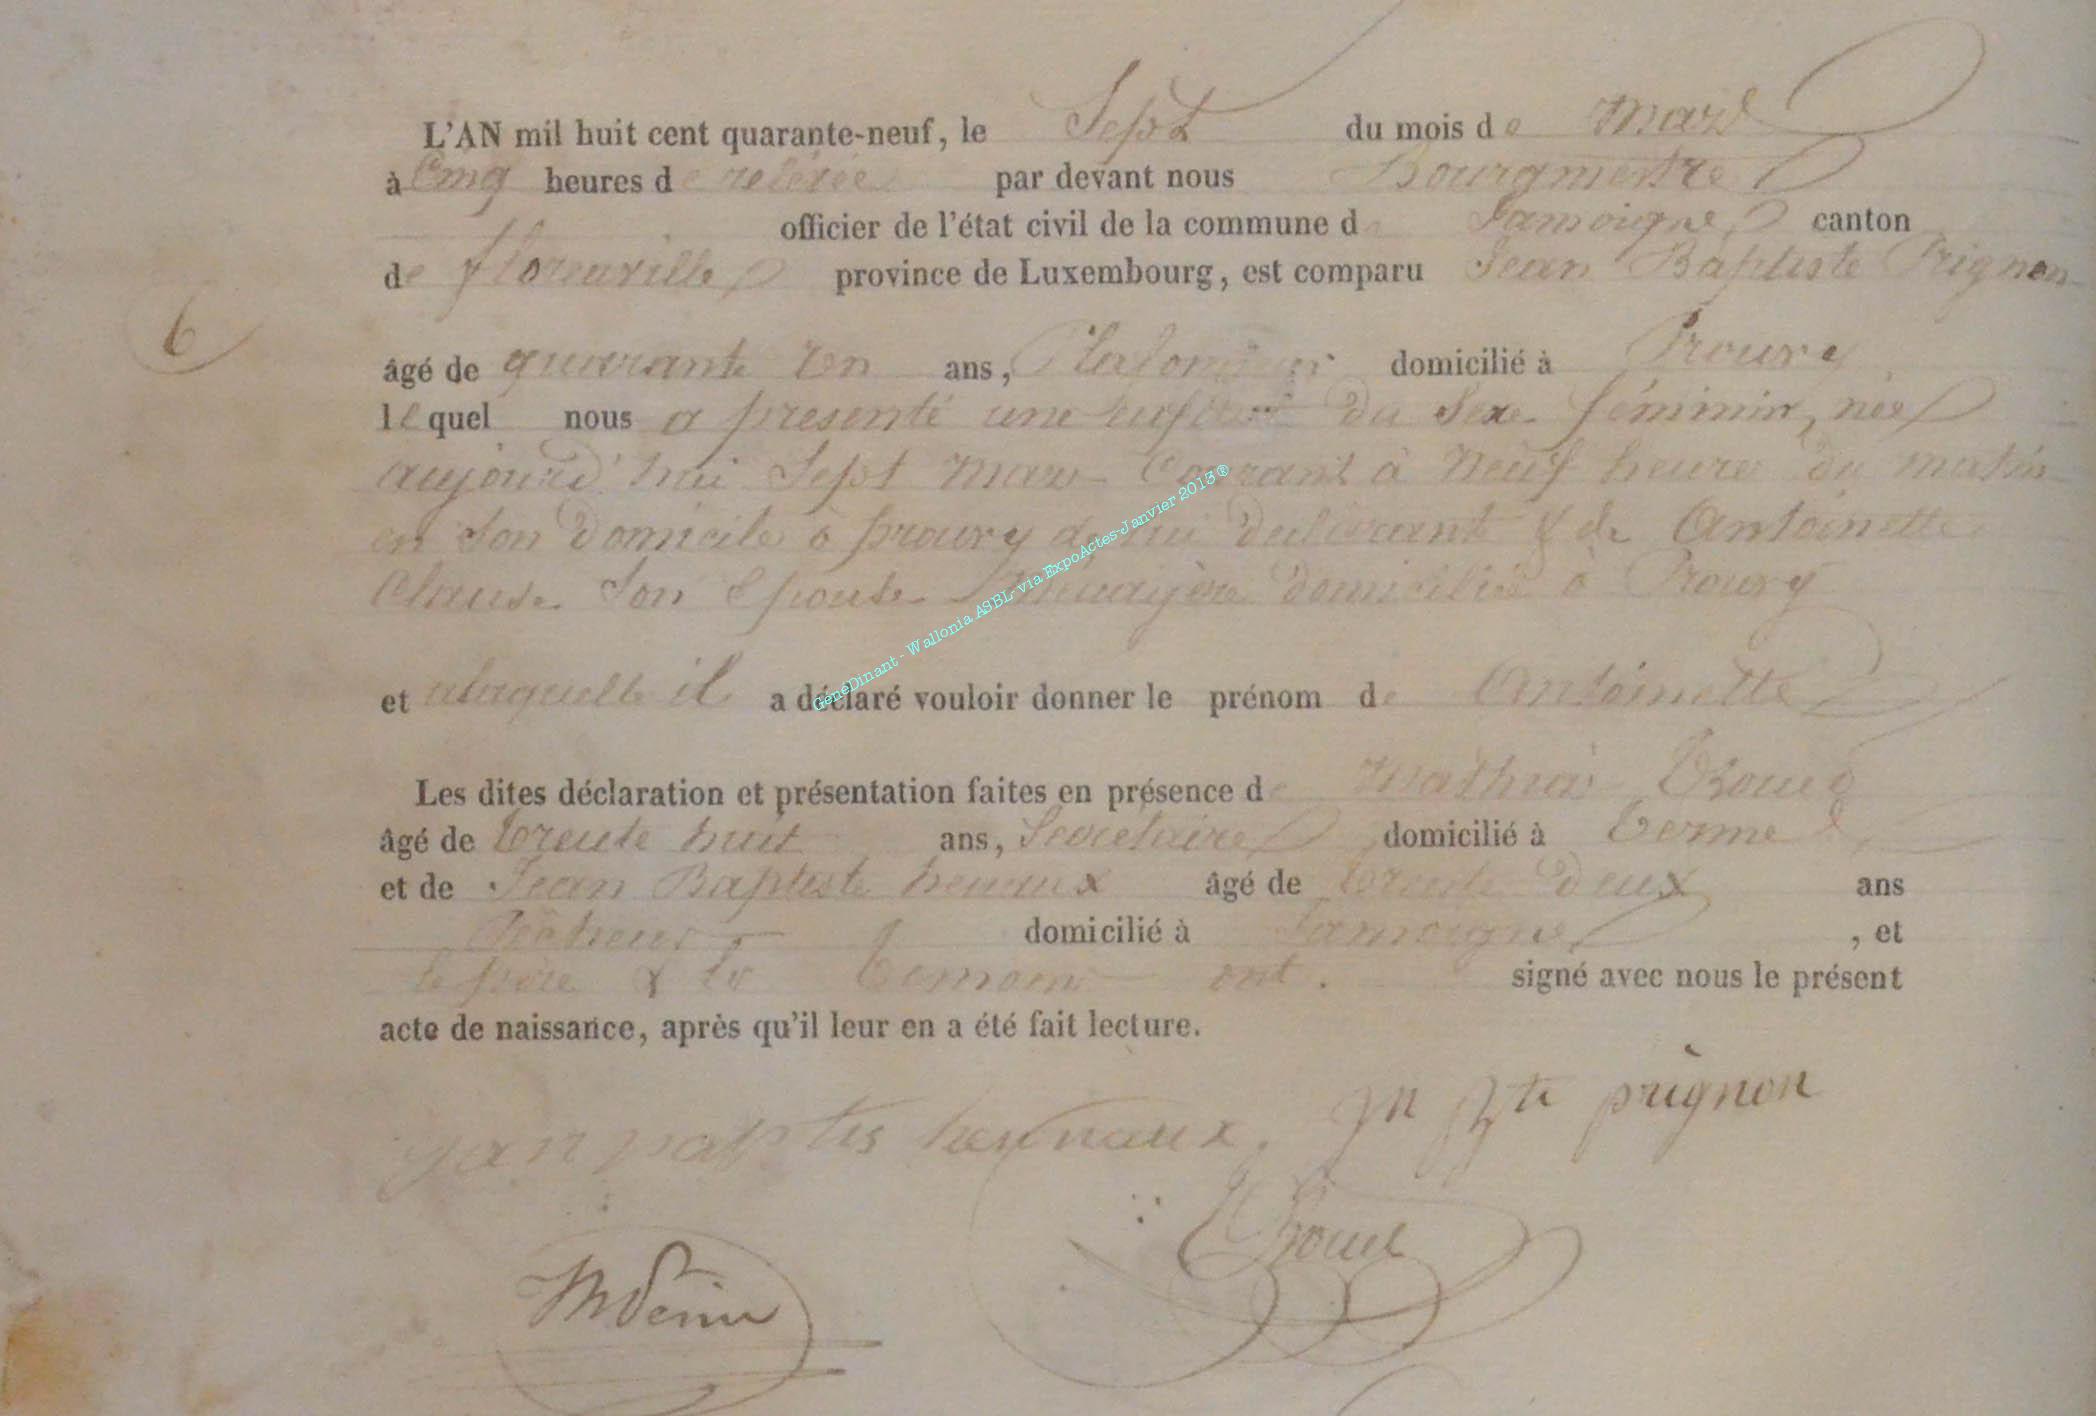 L'AN mil huit cent quarante-neuf, le Sept du mois de Mars
à Cinq heures de relevée par devant nous Bourgmestre
officier de l'état civil de la commune de Jamoigne canton
de florenville province de Luxembourg, est comparu Jean Baptiste Prignon
6
âgé de quarante un ans, Plafonneur domicilié à Prouvy
lequel nous a presenté une enfant du Sexe féminin, née
aujourd'hui Sept Mars Courant à Neuf heures du matin
en son domicile à prouvy de lui déclarant & de Antoinette
Clause Son Epouse Menagère domiciliée à Prouvy
et alaquelle il a déclaré vouloir donner le prénom de Antoinette
Les dites déclaration et présentation faites en présence de Mathias
âgé de trente huit ans, Secretaire domicilié à Termes
et de Jean Baptiste henaux âgé de trente deux ans
Pêcheur domicilié à Jamoigne, et
le père & les temoins ont. signé avec nous le présent
acte de naissance, après qu'il leur en a été fait lecture.
jan paptis hennaux. Jn Bte prignon
GénéDinant - Wallonia ASBL- via ExpoActes-Janvier 2013®